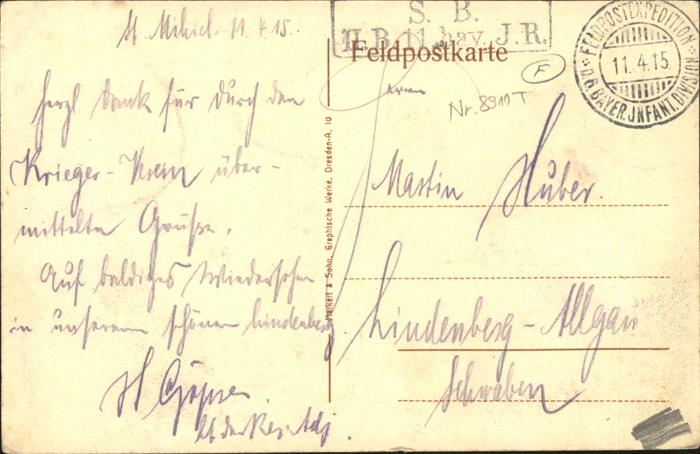 St. Mihiel. 11.4.15.
Herzl. Dank für durch den
Krieger-Verein über-
mittelten Grüße.
Auf baldiges Wiedersehen
in unserem schönen Lindenberg
Lt. der Res. Adj.
S. B.
II. B. 11. bay. J.R.
Feldpostkarte
FELDPOSTEXPEDITION
11.4.15.
BAYER. INFANT. DIVISION
F
Herrn
Nr. 8911 T
Martin Huber.
Lindenberg-Allgäu
Schwaben
Markert & Sohn, Graphische Werke, Dresden-A. 10